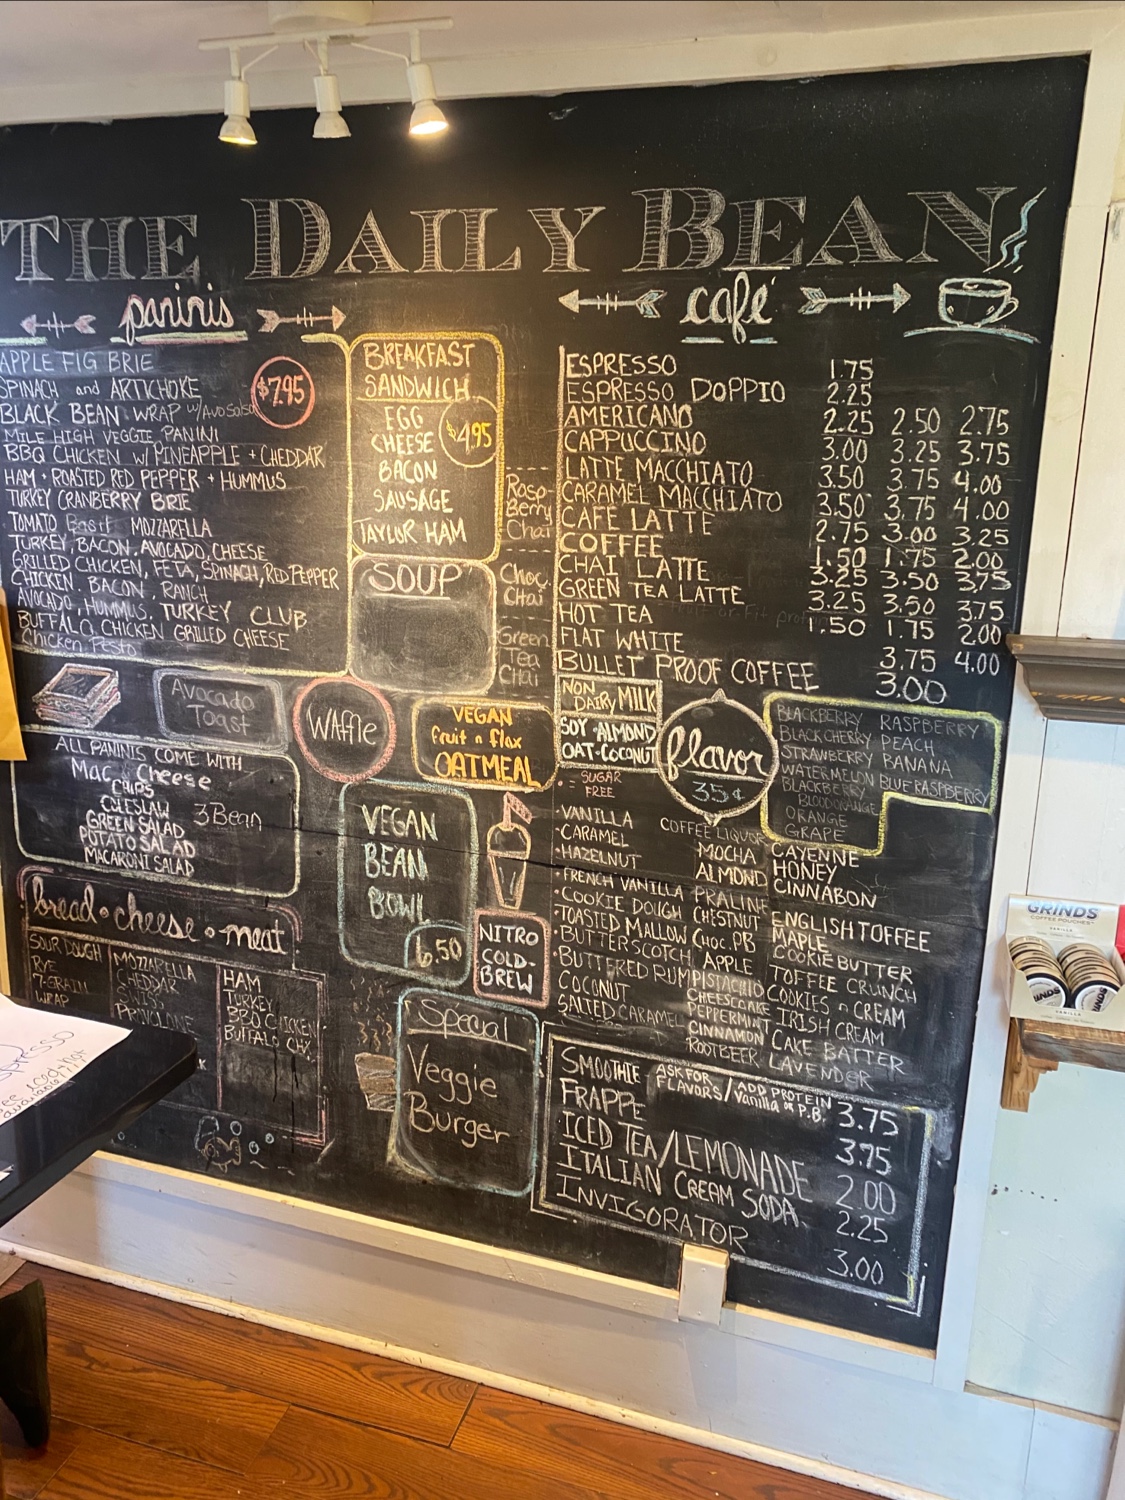 THE DAILY BEAN
paninis
$7.95
APPLE FIG BRIE
SPINACH and ARTICHOKE
BLACK BEAN WRAP w/Avo Salsa
MILE HIGH VEGGIE PANINI
BBQ CHICKEN W/ PINEAPPLE + CHEDDAR
HAM + ROASTED RED PEPPER + HUMMUS
TURKEY CRANBERRY BRIE
TOMATO Basil MOZZARELLA
TURKEY, BACON, AVOCADO, CHEESE
GRILLED CHICKEN, FETA, SPINACH, RED PEPPER
CHICKEN, BACON, RANCH
AVOCADO, HUMMUS, TURKEY CLUB
BUFFALO CHICKEN GRILLED CHEESE
Chicken Pesto
Avocado
Toast
ALL PANINIS COME WITH
Mac n cheese
CHIPS
COLESLAW 3 Bean
GREEN SALAD
POTATO SALAD
MACARONI SALAD
bread • cheese • meat
SOUR DOUGH
RYE
7-GRAIN
WRAP
MOZZARELLA
CHEDDAR
SWISS
PROVOLONE
HAM
TURKEY
BBQ CHICKEN
BUFFALO CHX
BREAKFAST
SANDWICH
$4.95
EGG
CHEESE
BACON
SAUSAGE
TAYLOR HAM
SOUP
Rasp-
Berry
Chai
Choc.
Chai
Green
Tea
Chai
WAffle
VEGAN
fruit n flax
OATMEAL
VEGAN
BEAN
BOWL
6.50
NITRO
COLD-
BREW
Special
Veggie
Burger
café
ESPRESSO 1.75
ESPRESSO DOPPIO 2.25
AMERICANO 2.25 2.50 2.75
CAPPUCCINO 3.00 3.25 3.75
LATTE MACCHIATO 3.50 3.75 4.00
CARAMEL MACCHIATO 3.50 3.75 4.00
CAFE LATTE 2.75 3.00 3.25
COFFEE 1.50 1.75 2.00
CHAI LATTE 3.25 3.50 3.75
GREEN TEA LATTE 3.25 3.50 3.75
HOT TEA 1.50 1.75 2.00
FLAT WHITE 3.75 4.00
BULLET PROOF COFFEE 3.00
NON DAIRY MILK
SOY • ALMOND
OAT • COCONUT
flavor
35¢
BLACKBERRY RASPBERRY
BLACK CHERRY PEACH
STRAWBERRY BANANA
WATERMELON BLUE RASPBERRY
BLACKBERRY
BLOOD ORANGE
ORANGE
GRAPE
• - SUGAR
FREE
• VANILLA
• CARAMEL
• HAZELNUT
• FRENCH VANILLA
• COOKIE DOUGH
• TOASTED MALLOW
• BUTTERSCOTCH
• BUTTERED RUM
COCONUT
SALTED CARAMEL
COFFEE LIQUOR
MOCHA
ALMOND
PRALINE
CHESTNUT
Choc. PB
APPLE
PISTACHIO
CHEESCAKE
PEPPERMINT
CINNAMON
ROOTBEER
CAYENNE
HONEY
CINNABON
ENGLISH TOFFEE
MAPLE
COOKIE BUTTER
TOFFEE CRUNCH
COOKIES n CREAM
IRISH CREAM
CAKE BATTER
LAVENDER
SMOOTHIE ASK FOR FLAVORS / ADD PROTEIN Vanilla or P.B. 3.75
FRAPPE 3.75
ICED TEA/LEMONADE 2.00
ITALIAN CREAM SODA 2.25
INVIGORATOR 3.00
GRINDS
COFFEE POUCHES
VANILLA